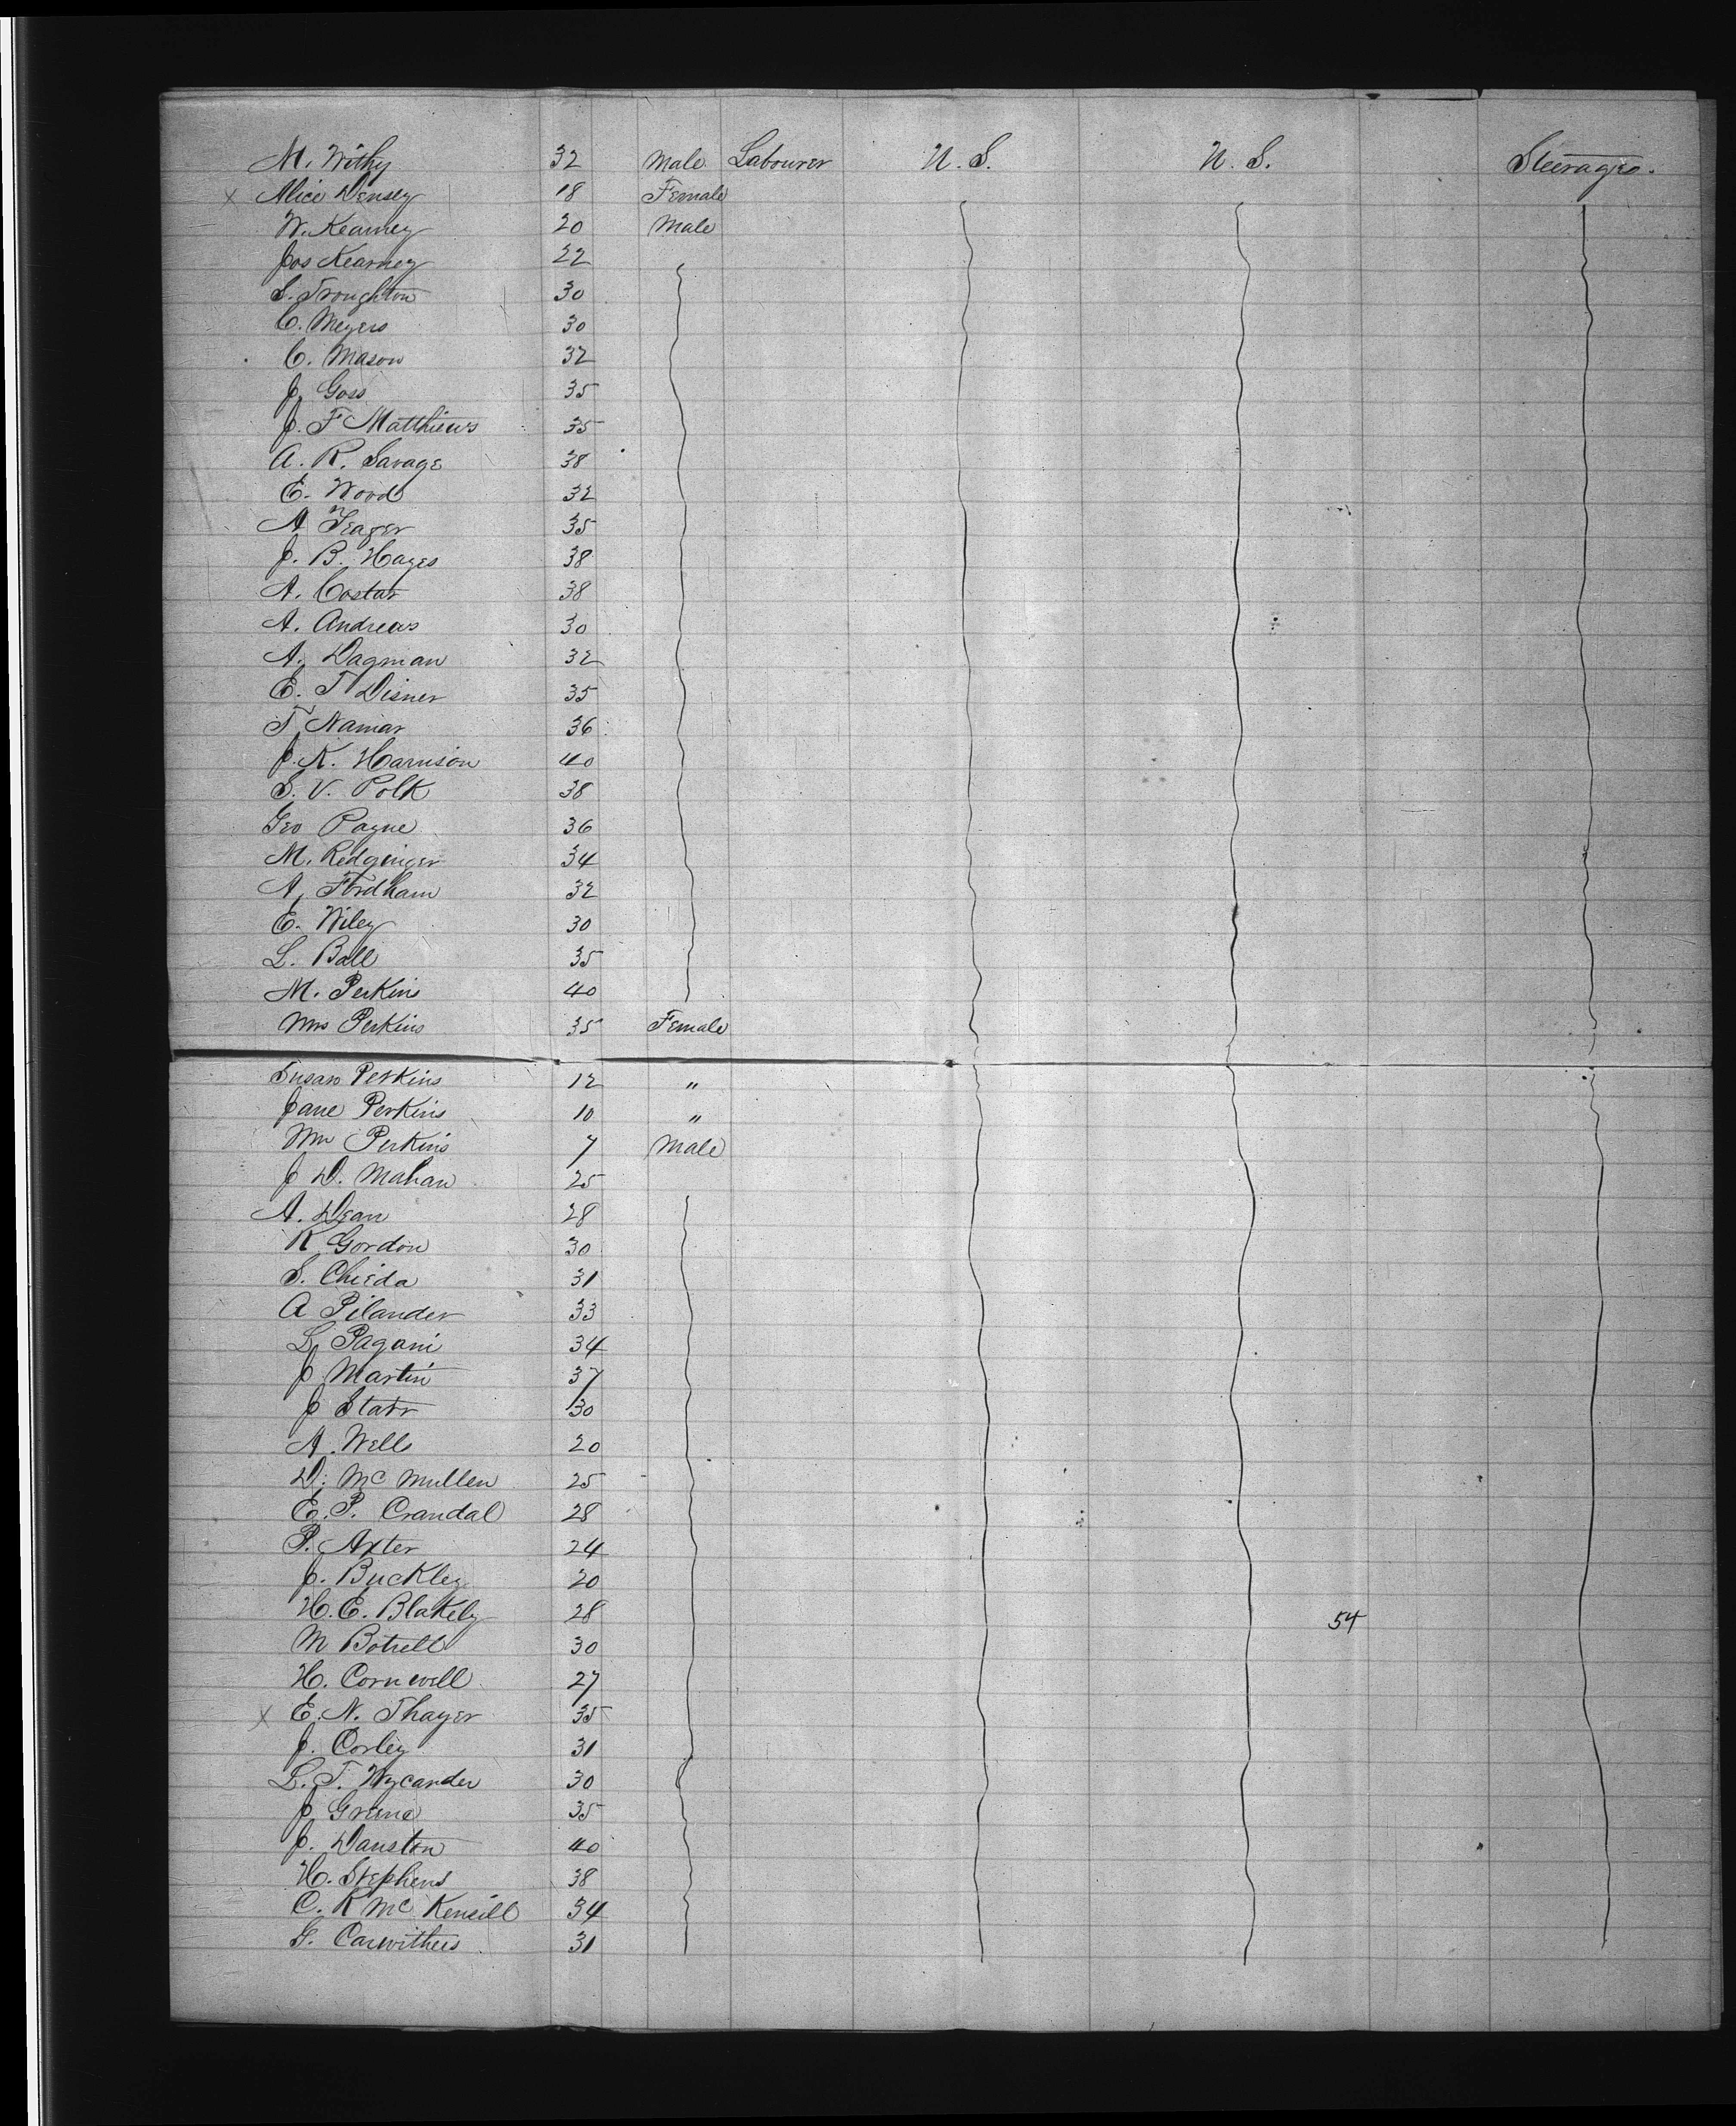 M. Withy 32 Male Labourer U. S. U. S. Steerage.
x Alice Densey 18 Female
W. Kearney 20 Male
Jos Kearney 22
S. Troughton 30
C. Meyers 30
C. Mason 32
J. Goss 35
J. F Matthews 35
A. R. Savage 38
E. Wood 32
A Yeager 35
J. B. Hayes 38
A. Costar 38
A. Andrews 30
A. Dagman 32
E. T Disner 35
T. Namar 36
J. K. Harrison 40
S. V. Polk 38
Geo Payne 36
M. Redginger 34
A. Fordham 32
E. Wiley 30
L. Ball 35
M. Perkins 40
Mrs Perkins 35 Female
Susan Perkins 12 "
Jane Perkins 10 "
Wm Perkins 7 Male
J D. Mahan 25
A. Dean 28
R Gordon 30
S. Chieda 31
A Pilander 33
L. Pagani 34
J Martin 37
J Starr 30
A. Wells 20
D. Mc Mullen 25
E. P. Crandal 28
P. Axter 24
J. Buckley 20
H. E. Blakely 28 54
M Botrell 30
H. Cornwell 27
x E. N. Thayer 35
J. Corley 31
L. T. Wycander 30
J. Greene 35
J. Danston 40
H. Stephens 38
C. R Mc Kensill 34
G. Carwithers 31